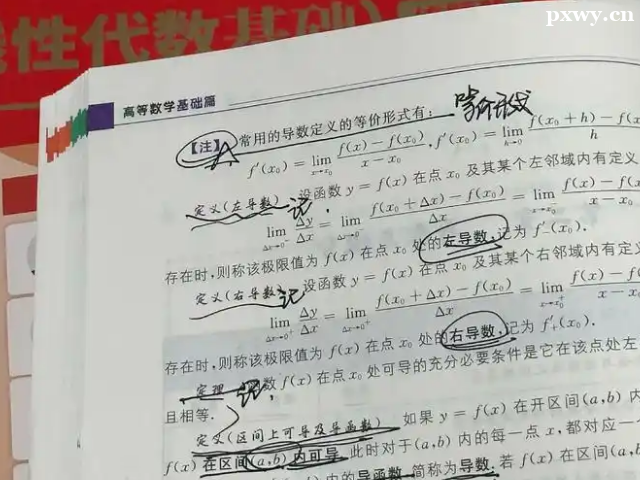 pxwy.cn
性代数基础
高等数学基础篇
【注】 常用的导数定义的等价形式有: 等价形式
f′(x₀) = lim x→x₀ (f(x) − f(x₀))/(x − x₀), f′(x₀) = lim h→0 (f(x₀ + h) − f(x
h
定义(左导数) 记 设函数 y = f(x) 在点 x₀ 及其某个左邻域内有定义
lim Δx→0⁻ Δy/Δx = lim Δx→0⁻ (f(x₀ + Δx) − f(x₀))/Δx = lim x→x₀⁻ f(x) − f(x
x − x₀
存在时,则称该极限值为 f(x) 在点 x₀ 处的左导数,记为 f′₋(x₀).
定义(右导数) 记 设函数 y = f(x) 在点 x₀ 及其某个右邻域内有定义
lim Δx→0⁺ Δy/Δx = lim Δx→0⁺ (f(x₀ + Δx) − f(x₀))/Δx = lim x→x₀⁺ f(x) − f(
x − x
存在时,则称该极限值为 f(x) 在点 x₀ 处的右导数,记为 f′₊(x₀).
定理 数 f(x) 在点 x₀ 处可导的充分必要条件是它在该点处左
且相等.
定义(区间上可导及导函数) 如果 y = f(x) 在开区间(a,b) 内
f(x) 在区间(a,b) 内可导. 此时对于(a,b) 内的每一点 x,都对应一
内的导函数,简称为导数. 若 f(x) 在区间(a,